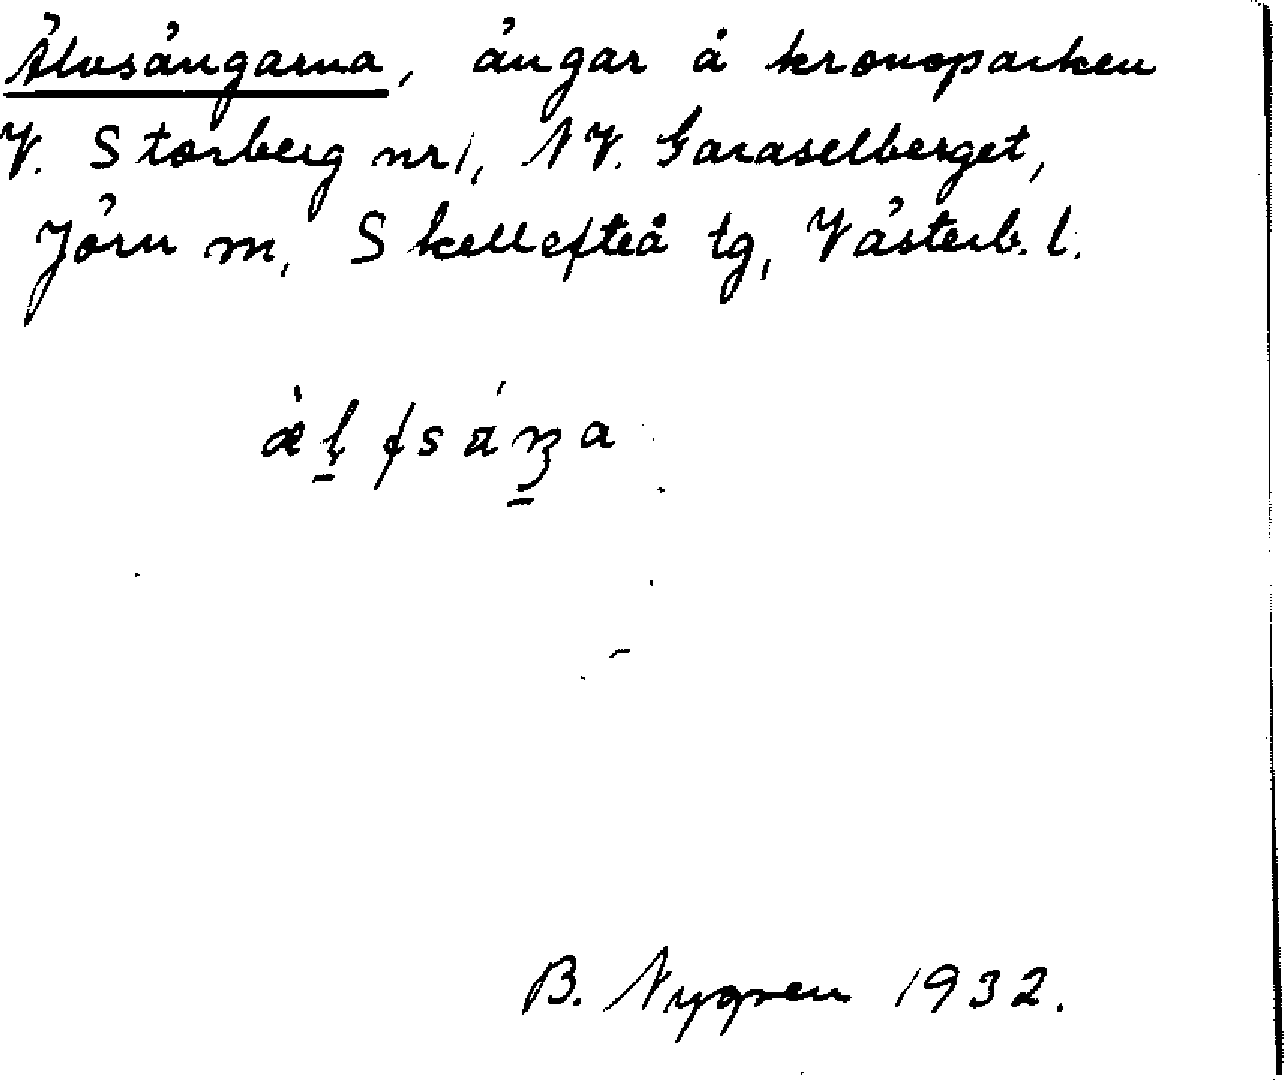 Älvsängarna, ängar å kronoparken
V. Storberg nr 1, NV. Garaselberget,
Jörn sn, Skellefteå tg, Västerb. l.
B. Nygren 1932.